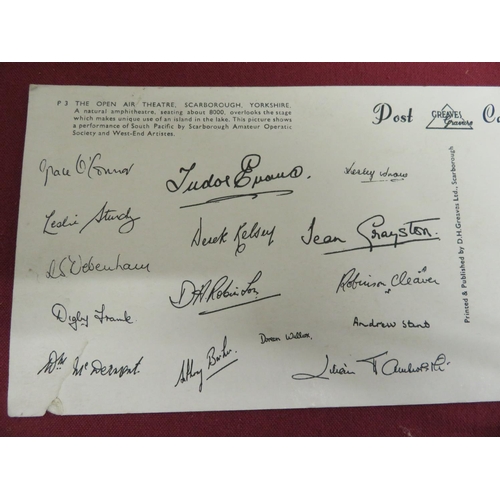 P 3 THE OPEN AIR THEATRE, SCARBOROUGH, YORKSHIRE.
A natural amphitheatre, seating about 8000, overlooks the stage
which makes unique use of an island in the lake. This picture shows
a performance of South Pacific by Scarborough Amateur Operatic
Society and West-End Artistes.
Post
GREAVES
Gravure
Printed & Published by D.H. Greaves Ltd., Scarborough
Grace O'Connor
Tudor Evans
Lesley
Leslie Sturdy
Derek Kelsey
Jean Grayston.
Debenham
D H Robinson
Robinson Cleaver
Digby Frank
Doreen
Andrew
Wm McDermot
Lilian